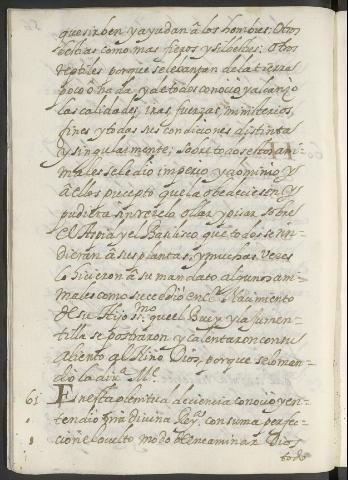 que sirben y ayudan â los hombres; Otros
bestias como mas fieros y silbestres; Otros
reptiles porque se levantan de la tierra
poco o nada, y de todos conocio y alcanço
las calidades, iras, fuerzas, ministerios,
fines y todas sus condiciones distinta
y singularmente; Sobre todos estos ani=
males se le dio imperio y dominio y
â ellos precepto que la obedeciesen y
pudiera sin rezelo ollar y pisar sobre
el Aspid y el Basilisco que todos se rin=
dieran â sus plantas, y muchas veces
lo hicieron â su mandato algunos ani=
males como sucedio en el Nacimiento
de su Hijo SSmo que el Buey y la jumen=
tilla se postraron y calentaron con su
aliento al Niño Dios, porque se lo man=
dò la divª Mᵉ
61 En esta plenitud de ciencia conocio y en=
tendio nrâ divina Reyª con suma perfe=
cion el oculto modo de encaminar Dios
todo